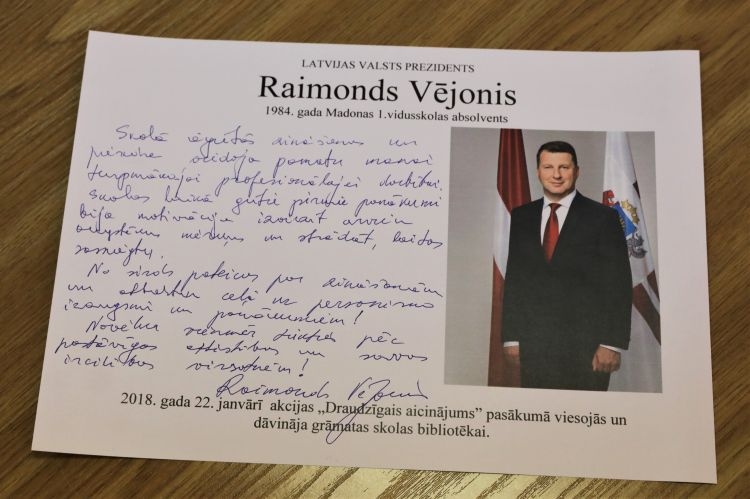 LATVIJAS VALSTS PREZIDENTS
Raimonds Vējonis
1984. gada Madonas 1.vidusskolas absolvents
Skolā iegūtās zināšanas un
pieredze veidoja pamatu manai
turpmākajai profesionālajai darbībai.
Skolas laikā gūtie pirmie panākumi
bija motivācija izvirzīt arvien
augstākus mērķus un strādāt, lai tos
sasniegtu.
No sirds pateicos par zināšanām
un atbalstu ceļā uz personisko
izaugsmi un panākumiem!
Novēlu vienmēr tiekties pēc
pastāvīgas attīstības un savas
izcilības virsotnēm!
Raimonds Vējonis
2018. gada 22. janvārī akcijas „Draudzīgais aicinājums” pasākumā viesojās un
dāvināja grāmatas skolas bibliotēkai.